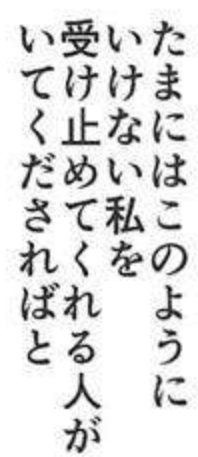 たまにはこのように
いけない私を
受け止めてくれる人が
いてくださればと